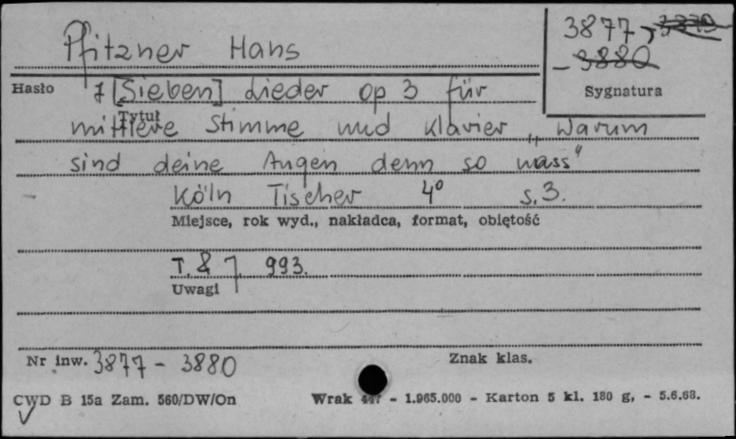 Pfitzner Hans
3877, 3879
- 3880
Hasło
Sygnatura
7 [Sieben] Lieder op 3 für
Tytuł
mittlere Stimme und Klavier „Warum
sind deine Augen denn so nass"
Köln Tischer 4° s. 3.
Miejsce, rok wyd., nakładca, format, objętość
T. & J. 993.
Uwagi
Nr inw. 3877 - 3880
Znak klas.
CWD B 15a Zam. 560/DW/On
Wrak 447 - 1.965.000 - Karton 5 kl. 180 g, - 5.6.68.